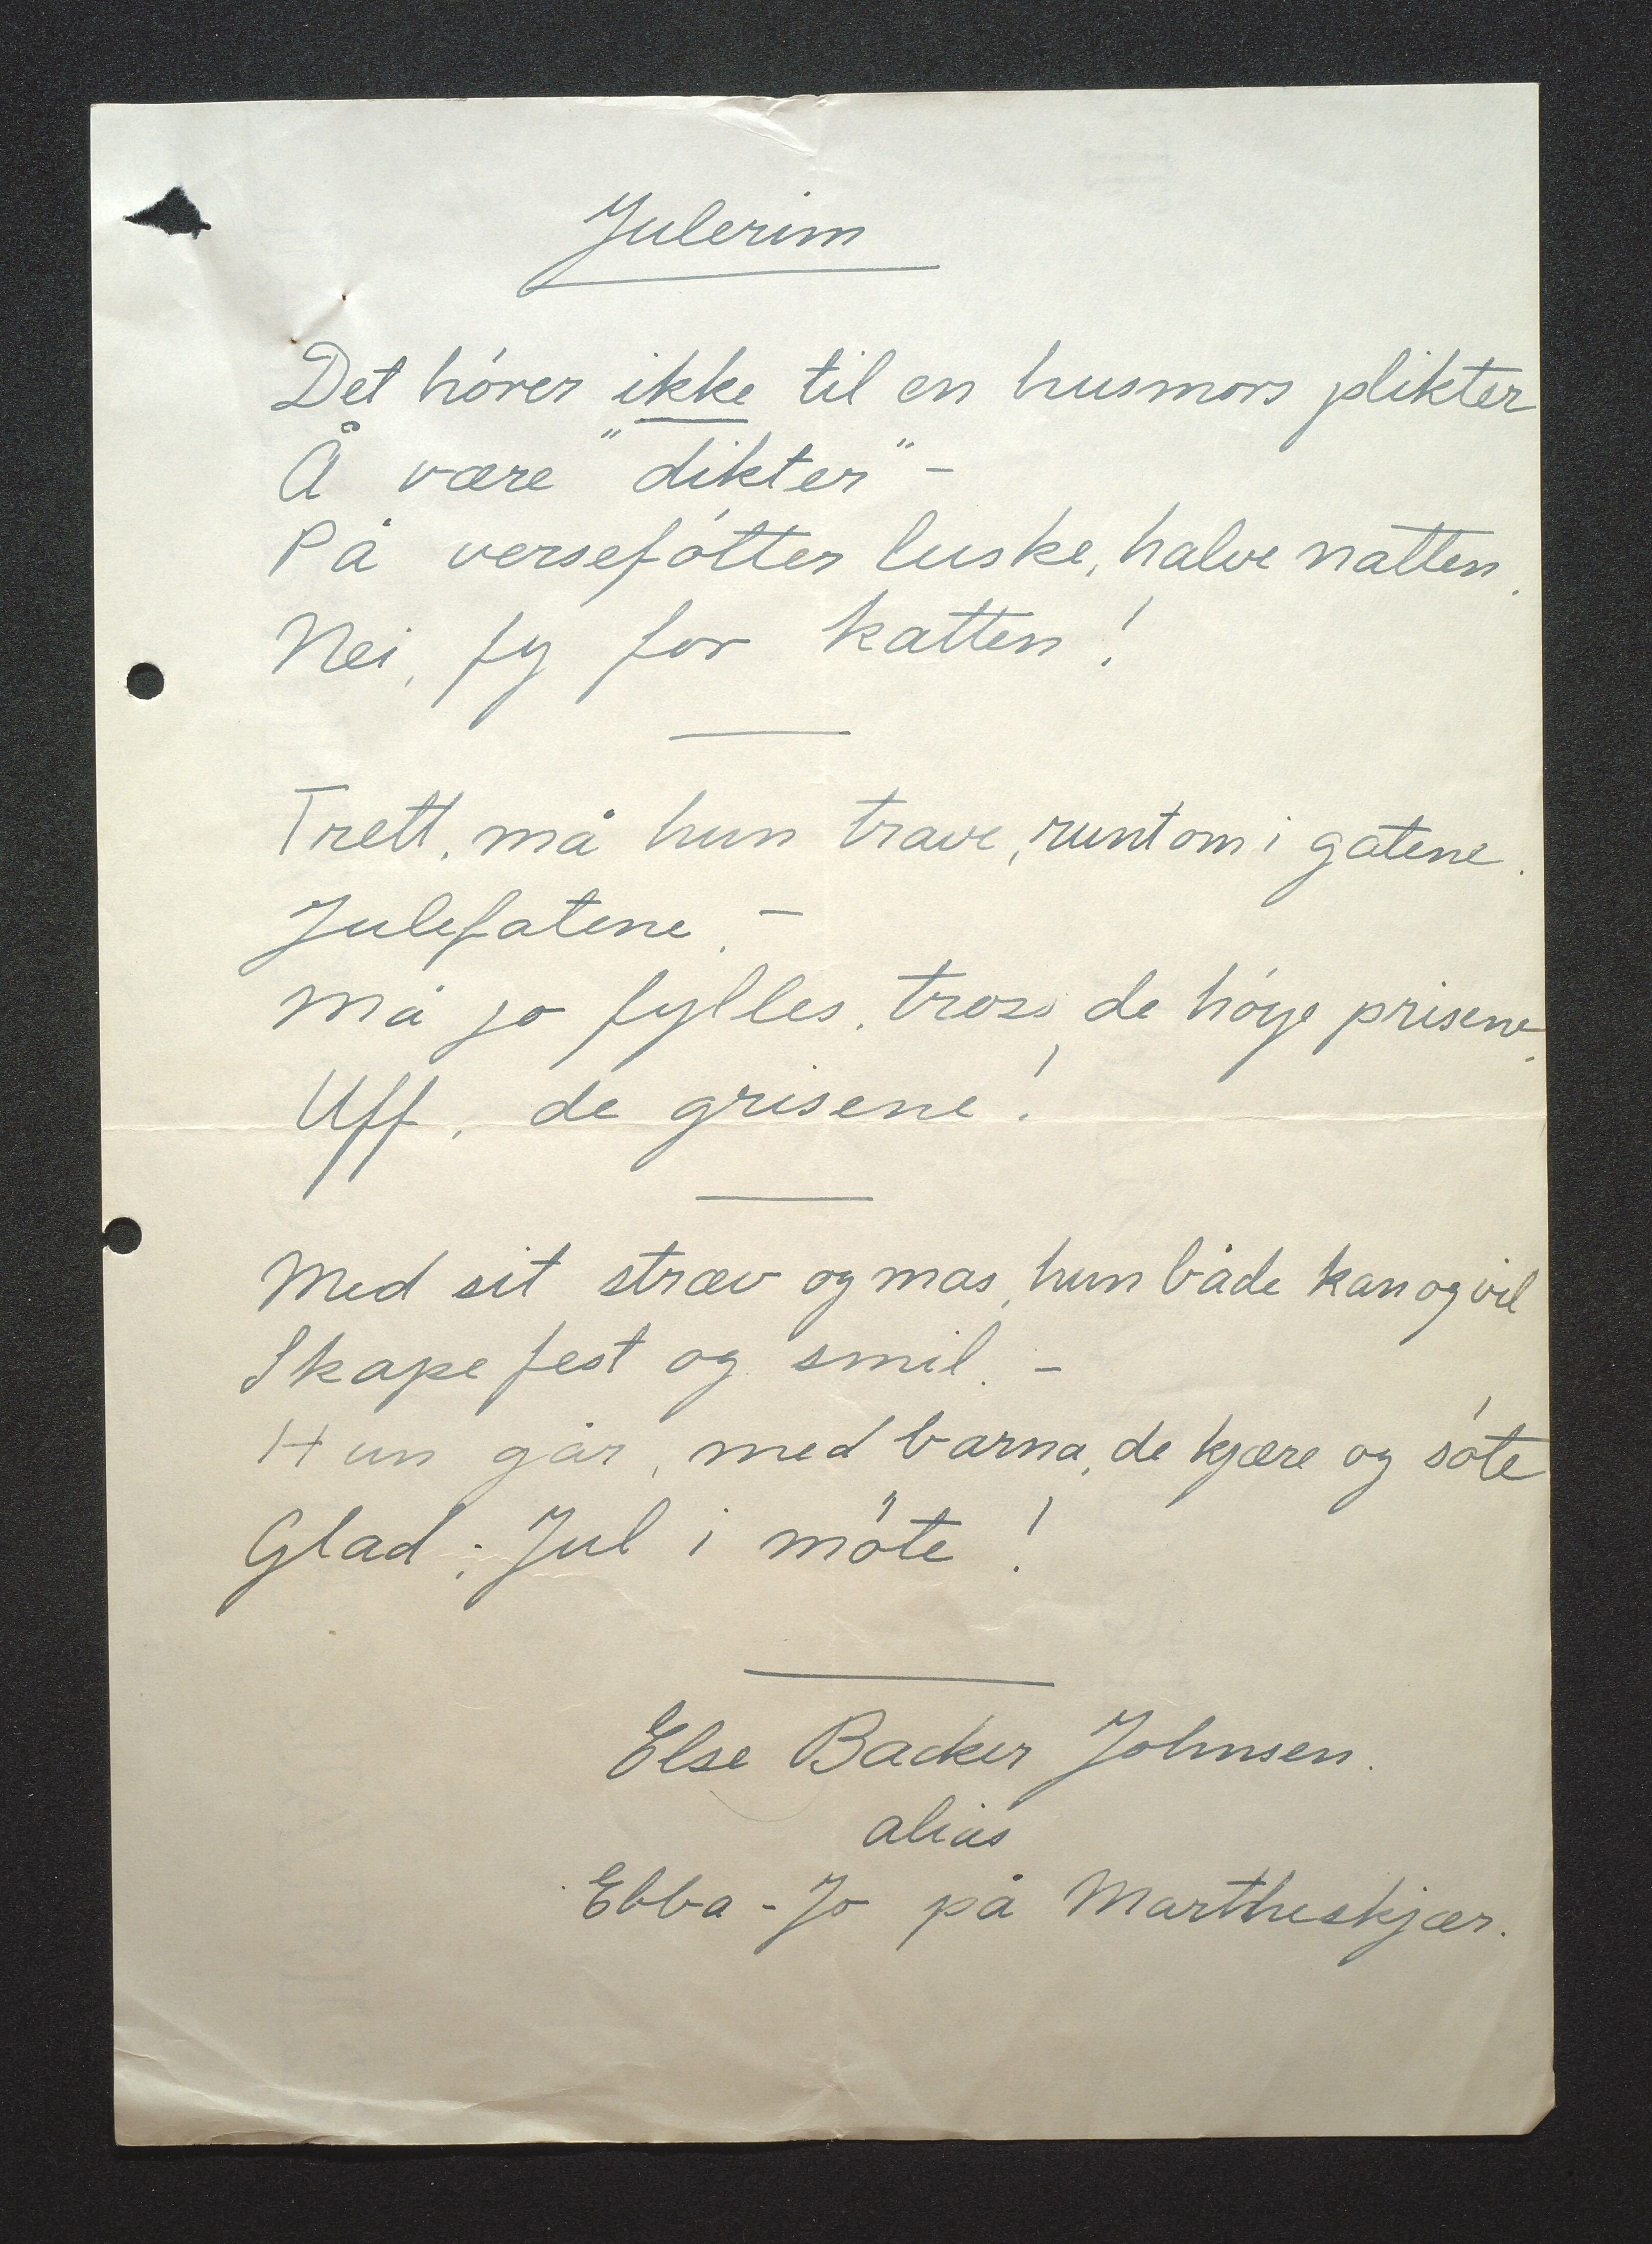 Julerim
Det hører ikke til en husmors plikter
Å være "dikter" -
På verseføtter luske, halve natten.
Nei, fy for katten!
Trett, må hun trave, runt om i gatene.
Julefatene. -
Må jo fylles, tross de høye prisene.
Uff, de grisene!
Med sit stræv og mas, hun både kan og vil
Skape fest og smil. -
Hun går, med barna, de kjære og søte
Glad; Jul i møte!
Else Backer Johnsen.
alias
Ebba-Jo på Martheskjær.